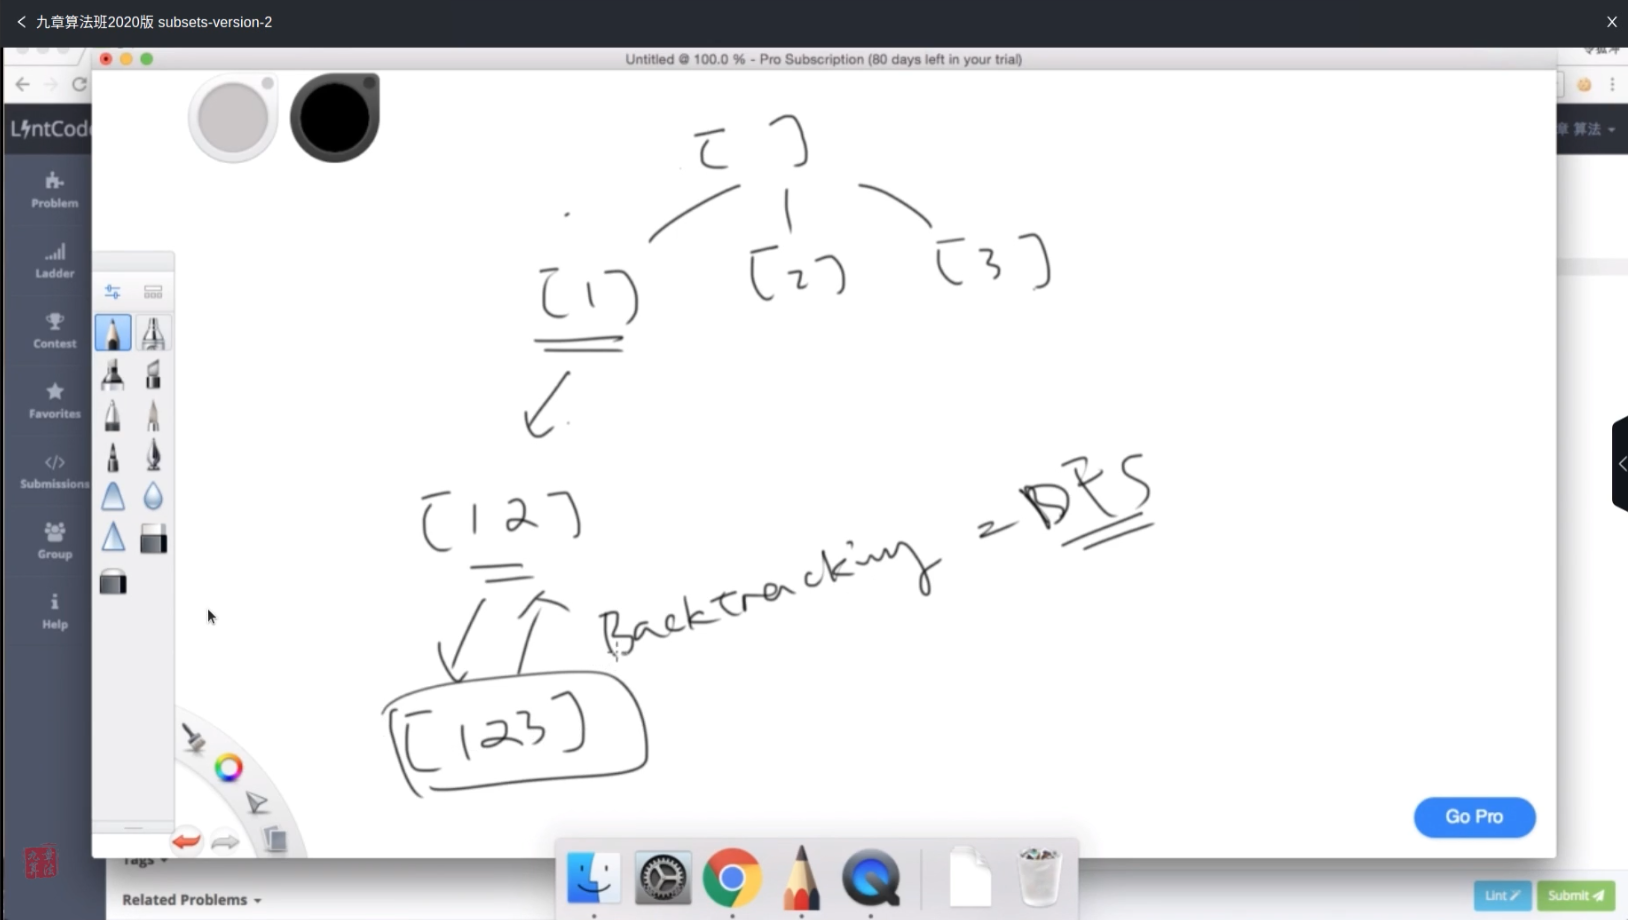 九章算法班2020版 subsets-version-2
Untitled @ 100.0 % - Pro Subscription (80 days left in your trial)
LintCode
章 算法
Problem
Ladder
Contest
Favorites
Submissions
Group
Help
[ ]
[1] [2] [3]
[1 2]
Backtracking = DFS
[1 2 3]
Go Pro
Tags
Related Problems
Lint
Submit